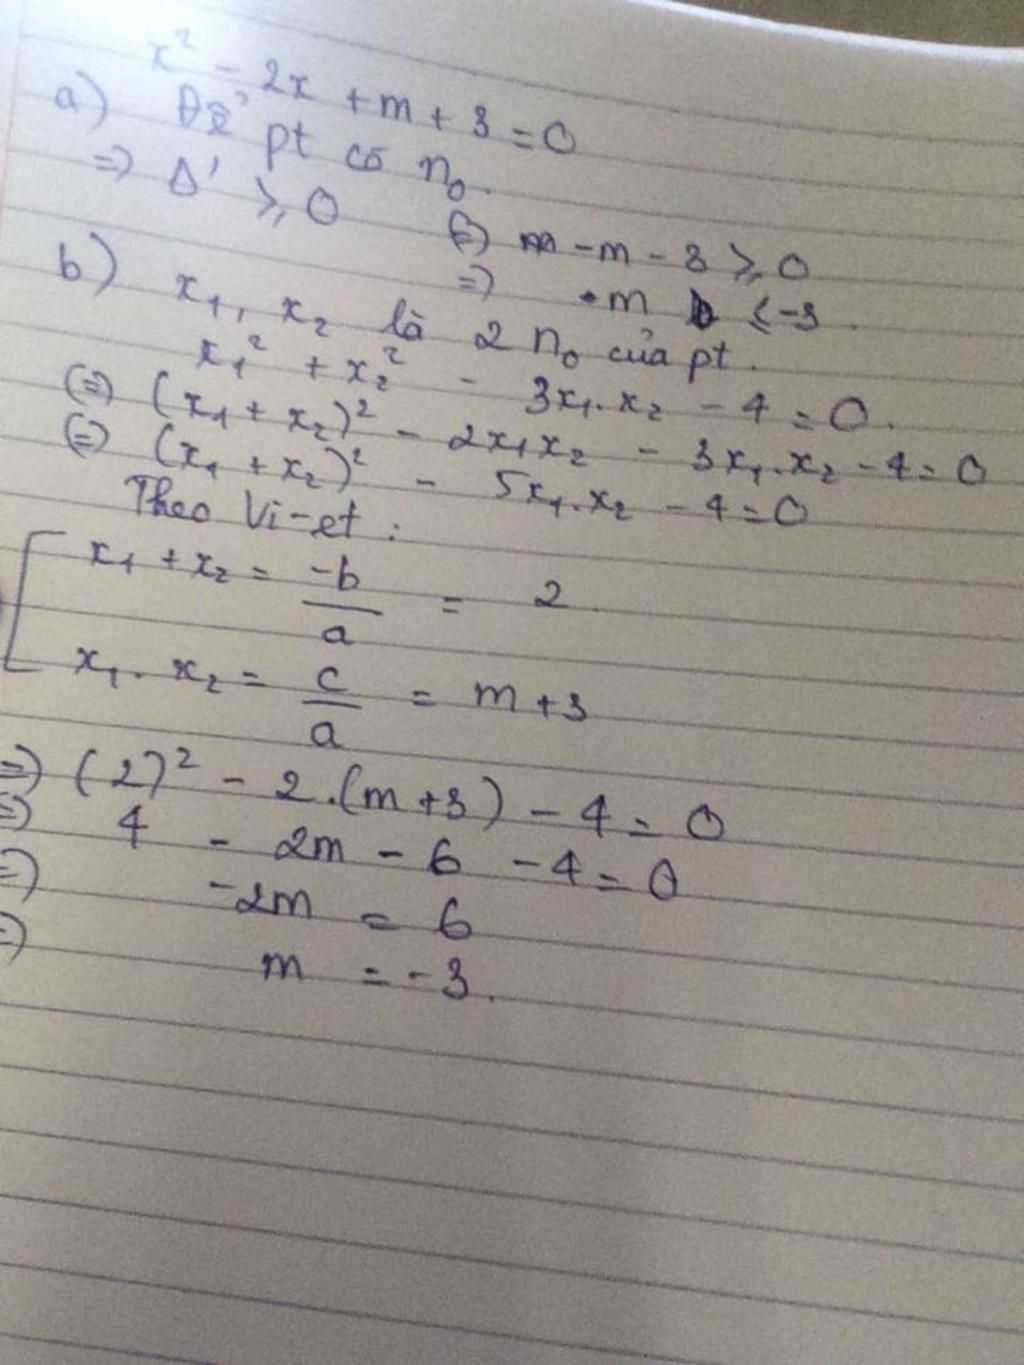 x² - 2x + m + 3 = 0
a) Để pt có n₀.
=> Δ' ⩾ 0 <=> -m - 3 ⩾ 0
=> m ≤ -3.
b) x₁, x₂ là 2 n₀ của pt.
x₁² + x₂² - 3x₁.x₂ - 4 = 0.
(=) (x₁ + x₂)² - 2x₁x₂ - 3x₁.x₂ - 4 = 0
(=) (x₁ + x₂)² - 5x₁.x₂ - 4 = 0
Theo Vi-et :
x₁ + x₂ = -b/a = 2.
x₁. x₂ = c/a = m + 3
=) (2)² - 2.(m + 3) - 4 = 0
=) 4 - 2m - 6 - 4 = 0
=) -2m = 6
=) m = -3.